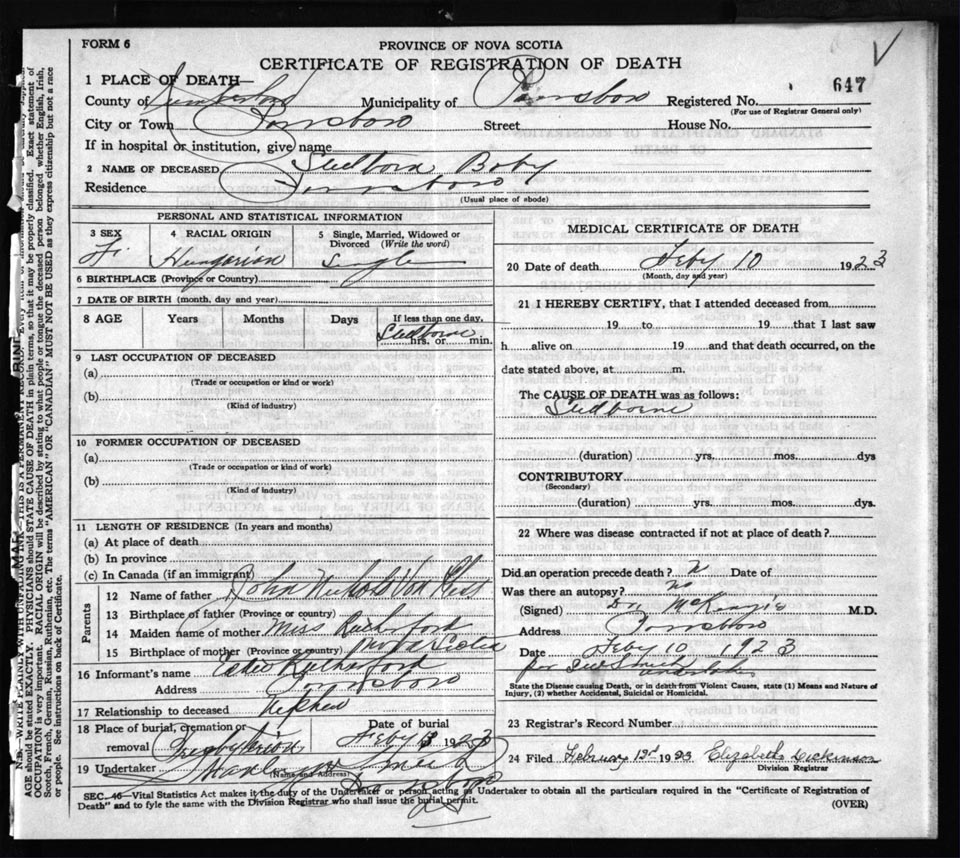 FORM 6
PROVINCE OF NOVA SCOTIA
CERTIFICATE OF REGISTRATION OF DEATH
647
1 PLACE OF DEATH—
County of Cumberland Municipality of Parrsboro Registered No.
(For use of Registrar General only)
City or Town Parrsboro Street House No.
If in hospital or institution, give name
2 NAME OF DECEASED Stillborn Baby
Residence Parrsboro
(Usual place of abode)
PERSONAL AND STATISTICAL INFORMATION
3 SEX 4 RACIAL ORIGIN 5 Single, Married, Widowed or Divorced (Write the word)
F. Hungarian Single
6 BIRTHPLACE (Province or Country)
7 DATE OF BIRTH (month, day and year)
8 AGE Years Months Days If less than one day,
Stillborne
hrs. or min.
9 LAST OCCUPATION OF DECEASED
(a)
(Trade or occupation or kind or work)
(b)
(Kind of industry)
10 FORMER OCCUPATION OF DECEASED
(a)
(Trade or occupation or kind or work)
(b)
(Kind of industry)
11 LENGTH OF RESIDENCE (In years and months)
(a) At place of death
(b) In province
(c) In Canada (if an immigrant)
Parents
12 Name of father John Von
13 Birthplace of father (Province or country)
14 Maiden name of mother Miss Rutherford
15 Birthplace of mother (Province or country) Nova Scotia
16 Informant's name Rutherford
Address Parrsboro
17 Relationship to deceased Nephew
18 Place of burial, cremation or removal Date of burial
Feby 1923
19 Undertaker
(Name and Address)
MEDICAL CERTIFICATE OF DEATH
20 Date of death Feby 10 1923
(Month, day and year)
21 I HEREBY CERTIFY, that I attended deceased from
19 to 19 that I last saw
h alive on 19 and that death occurred, on the
date stated above, at m.
The CAUSE OF DEATH was as follows:
Stillborne
(duration) yrs. mos. dys
CONTRIBUTORY
(Secondary)
(duration) yrs. mos. dys.
22 Where was disease contracted if not at place of death?
Did an operation precede death? N Date of
Was there an autopsy? no
(Signed) Dr McKenzie M.D.
Address Parrsboro
Date Feby 10 1923
State the Disease causing Death, or in death from Violent Causes, state (1) Means and Nature of
Injury, (2) whether Accidental, Suicidal or Homicidal.
23 Registrar's Record Number
24 Filed February 1923 Elizabeth Dickinson
Division Registrar
SEC. 46—Vital Statistics Act makes it the duty of the Undertaker or person acting as Undertaker to obtain all the particulars required in the "Certificate of Registration of
Death" and to fyle the same with the Division Registrar who shall issue the burial permit.
(OVER)
N.B. WRITE PLAINLY WITH UNFADING INK—THIS IS A PERMANENT RECORD.
AGE should be stated EXACTLY. PHYSICIANS should STATE CAUSE OF DEATH in plain terms, so that it may be properly classified. Exact statement of
OCCUPATION is very important. RACIAL ORIGIN will be described by stating to what people or tongue the deceased person belonged whether English, Irish,
Scotch, French, German, Russian, Ruthenian, etc. The terms "AMERICAN" OR "CANADIAN" MUST NOT BE USED as they express citizenship but not a race
or people. See instructions on back of Certificate.